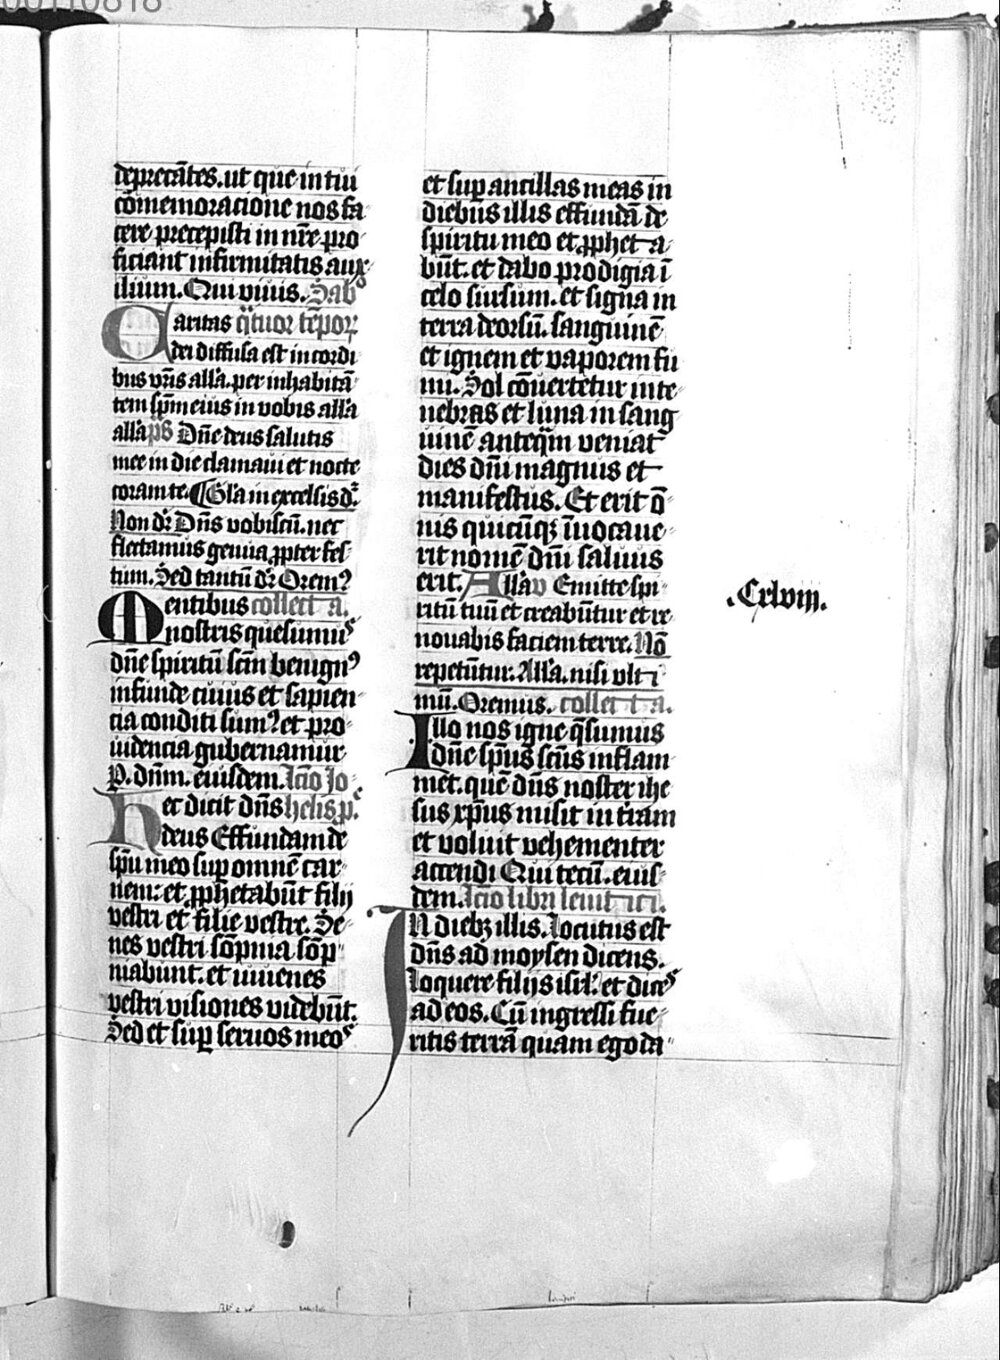 deprecãtes.ut que in tui
cõmemoracione nos fa
cere precepisti in nr̃e pro
ficiant infirmitatis aux
ilium. Qui viuis. Sabᵒ
Caritas q̃tuor tẽpoꝝ
dei diffusa est in cordi
bus vr̃is all'a. per inhabitã
tem sp̃m eius in vobis all'a
all'a pS Dñe deus salutis
mee in die clamaui et nocte
coram te. Gl'a in excelsis dʳ.
Non dʳ Dñs vobiscũ. nec
flectamus genua ꝓpter fes
tum. Sed tantũ dʳ Oremꝰ
Mentibus collect a.
nostris quesumuˢ
dñe spiritũ scm̃ benignꝰ
infunde cuius et sapien
cia conditi sumꝰ et pro
uidencia gubernamur
P. dnm̃. eiusdem. lc̃io Jo
Hec dicit dñs helis ꝓ.
deus Effundam de
spũ meo suꝑ omnẽ car
nem: et ꝓphetabũt filij
vestri et filie vestre. Se
nes vestri sõpnia sõp
niabunt. et iuuenes
vestri visiones videbũt.
Sed et suꝑ seruos meoˢ
et suꝑ ancillas meas in
diebus illis effundã de
spiritu meo et ꝓphet a
bũt. et dabo prodigia ĩ
celo sursum. et signa in
terra deorsũ. sanguinẽ
et ignem et vaporem fu
mi. Sol cõuertetur in te
nebras et luna in sang
uinẽ anteq̃m veniat
dies dñi magnus et
manifestus. Et erit õ
nis quicũqꝫ ĩuocaue
rit nomẽ dñi saluus
erit. All'a v Emitte spi
ritũ tuũ et creabũtur et re
nouabis faciem terre. Nõ
repetũtur. All'a. nisi vlt i
mũ. Oremus. collect a.
Illo nos igne q̃sumus
dñe sp̃us sc̃us inflam
met. quẽ dñs noster ihe
sus xp̃us misit in t̃ram
et voluit vehementer
accendi Qui tecũ. eius
dem. lc̃io libri leuit ici.
IN diebꝫ illis. locutus est
dñs ad moysen dicens.
loquere filijs isrl'. et diceˢ
ad eos. Cũ ingressi fue
ritis terrã quam ego da
.Cxlviii.